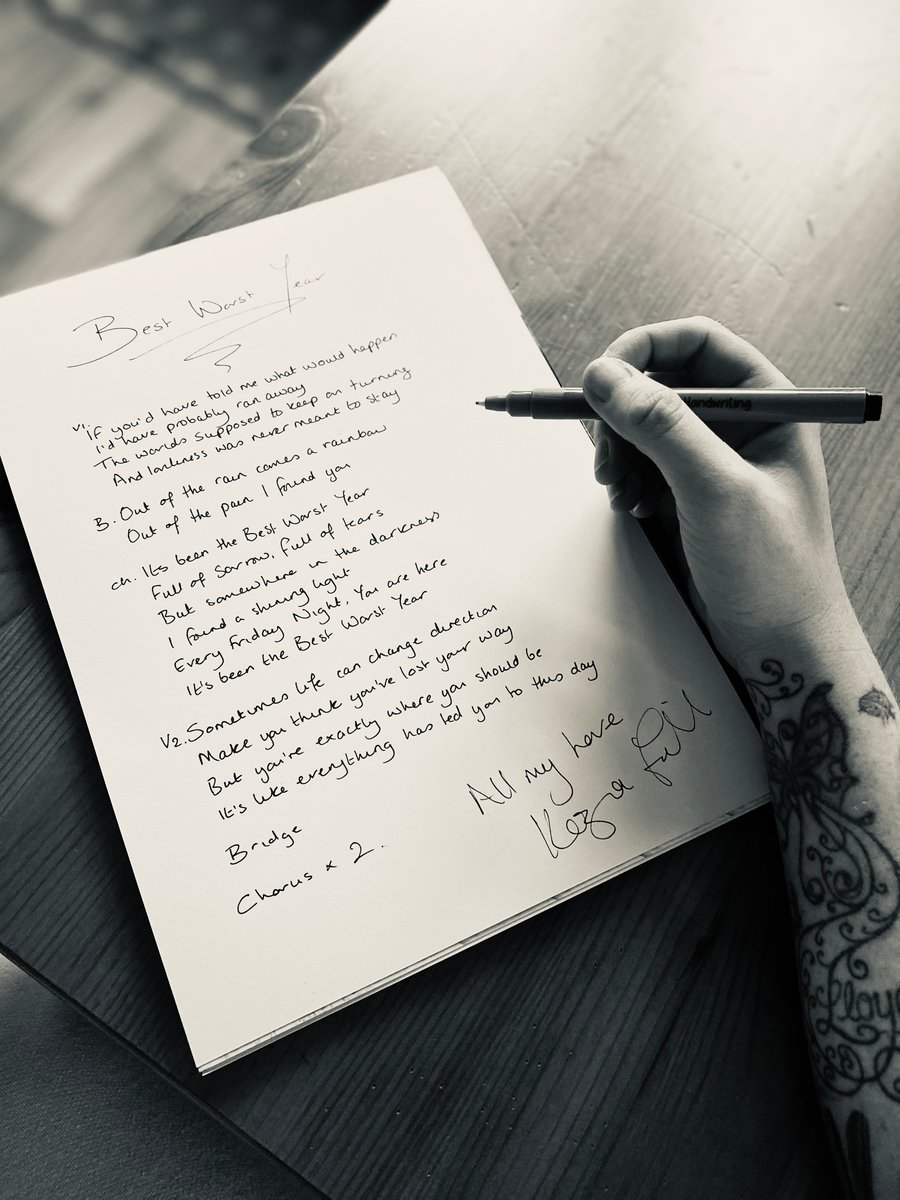 Best Worst Year
V1. If you'd have told me what would happen
I'd have probably ran away
The worlds supposed to keep on turning
And lonliness was never meant to stay
B. Out of the rain comes a rainbow
Out of the pain I found you
Ch. It's been the Best Worst Year
Full of sorrow, full of tears
But somewhere in the darkness
I found a shining light
Every Friday Night, You are here
It's been the Best Worst Year
V2. Sometimes life can change direction
Make you think you've lost your way
But you're exactly where you should be
It's like everything has led you to this day
Bridge
Chorus x 2.
All my love
Kezia Gill
Handwriting